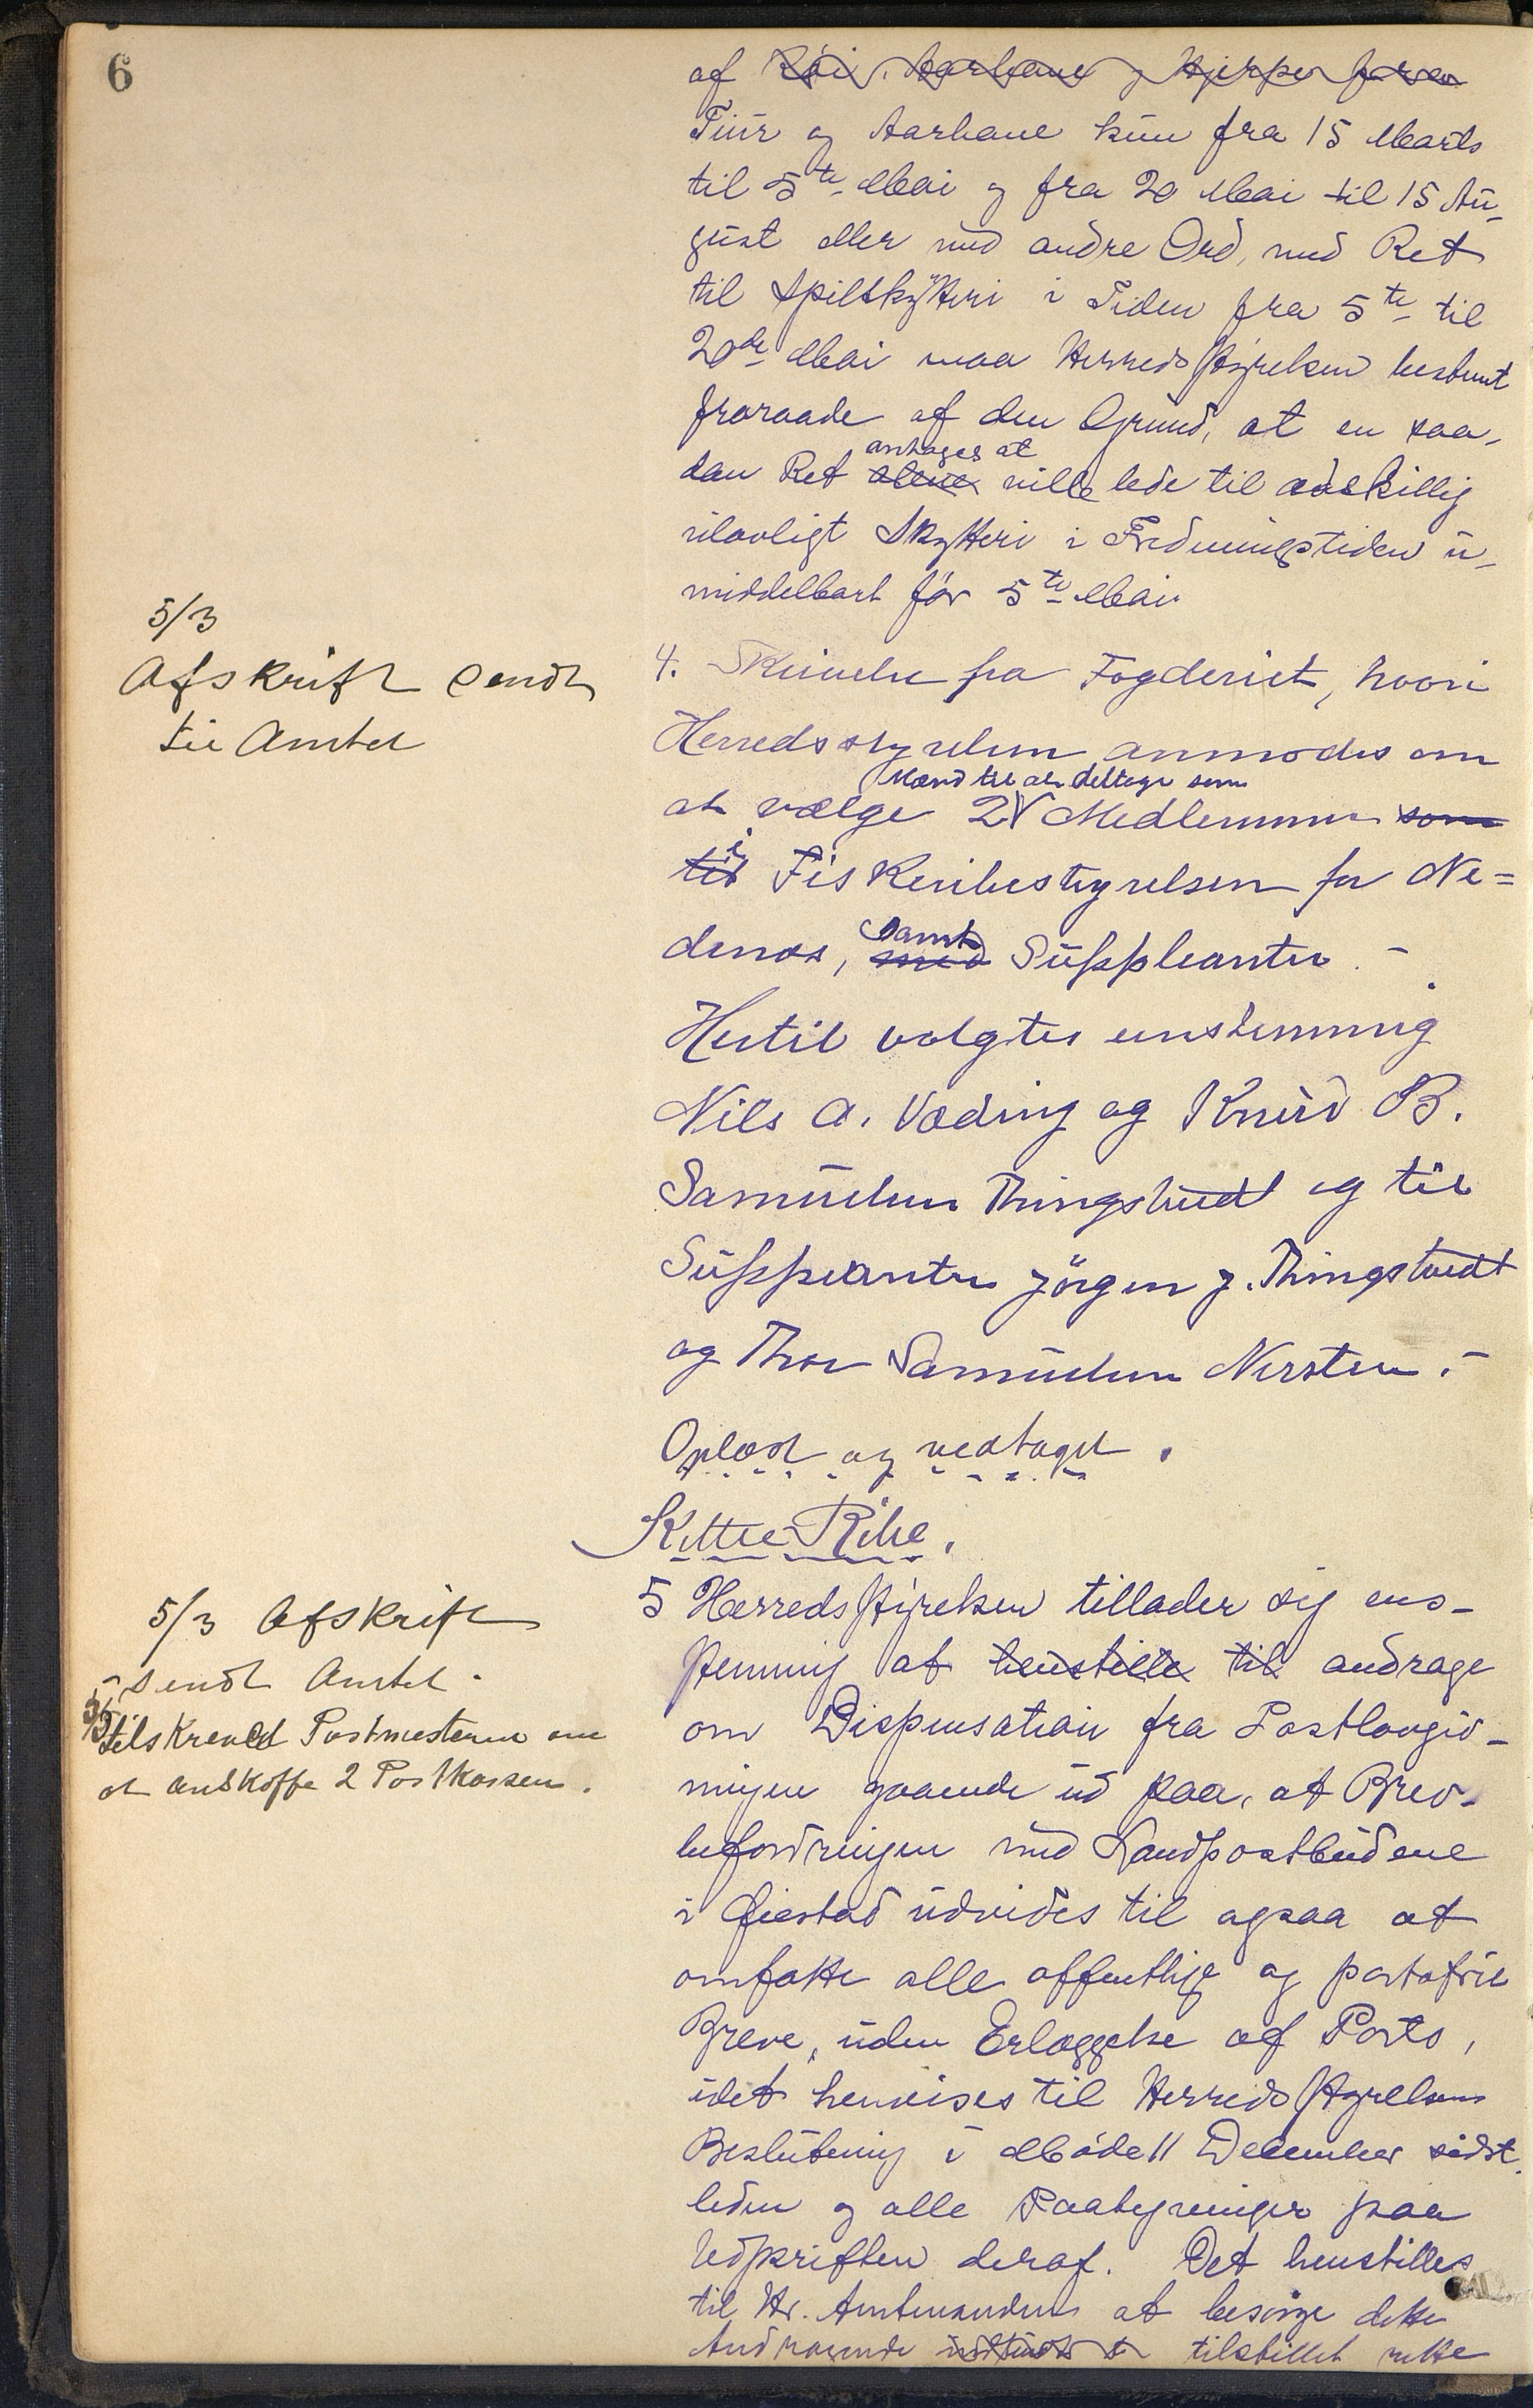 6
af Röi, Aarhane og Hjerper foren
Tiur og Aarhane kun fra 15 Marts
til 5te Mai og fra 20 Mai til 15 Au-
gust eller med andre Ord, med Ret
til Spilskytteri i Tiden fra 5te til
20de Mai maa Herredsstyrelsen bestemt
fraraade af den Grund, at en saa-
antages at
dan Ret alene ville lede til adskillig
ulovligt Skytteri i Fredningstiden u-
middelbart før 5te Mai
5/3
Afskrift sendt
til Amtet
4. Skrivelse fra Fogderiet, hvori
Herredsstyrelsen anmodes om
Mænd til at deltage som
at vælge 2 Medlemmer som
i
til Fiskeribestyrelsen for Ne=
samt
denæs, med Suppleanter. –
Hertil valgtes enstemmig
Nils A. Vading og Knud B.
Samuelsen Thingstvedt og til
Suppleanter Jörgen J. Thingstvedt
og Thor Samuelsen Nersten. –
Oplæst og vedtaget.
Kitte-Ribe.
5/3 Afskrift
sendt Amtet.
5/3 Tilskreved Postmesteren om
at anskaffe 2 Postkassen.
5 Herredsstyrelsen tillader sig ens-
stemmig at henstille til andrage
om Dispensation fra Postlovgiv-
ningen gaaende ud paa, at Brev-
befordringen med Landpostbudene
i Øiestad udvides til ogsaa at
omfatte alle offentlige og portofrie
Breve, uden Erlæggelse af Porto,
idet henvises til Herredsstyrelsens
Beslutning i Møde 11 December sidst-
leden og alle Paategninger paa
Udskriften deraf. Det henstilles
til Hr. Amtmanden at besørge dette
Andragende indsendt & tilstillet rette